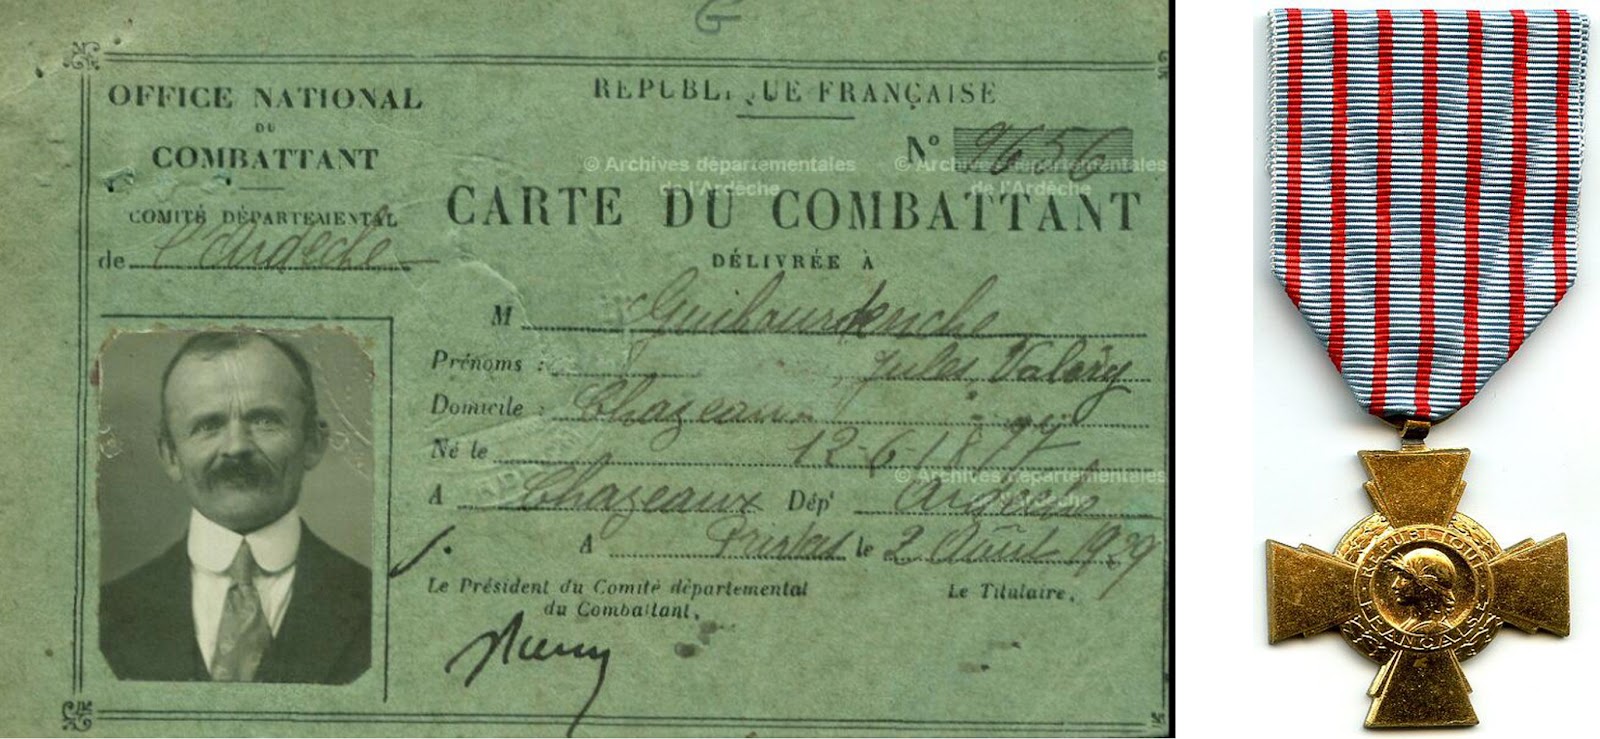 OFFICE NATIONAL
DU
COMBATTANT
COMITÉ DÉPARTEMENTAL
de l'Ardèche
RÉPUBLIQUE FRANÇAISE
N° 9656
© Archives départementales
de l'Ardèche
© Archives départementales
de l'Ardèche
CARTE DU COMBATTANT
DÉLIVRÉE À
M Guibourdenche
Prénoms : Jules, Valéry
Domicile : Chazeaux
Né le 12-6-1877
A Chazeaux Dépt Ardèche
© Archives départementales
de l'Ardèche
A Privas le 2 Août 1929
Le Président du Comité départemental
du Combattant.
Le Titulaire.
RÉPUBLIQUE
FRANÇAISE